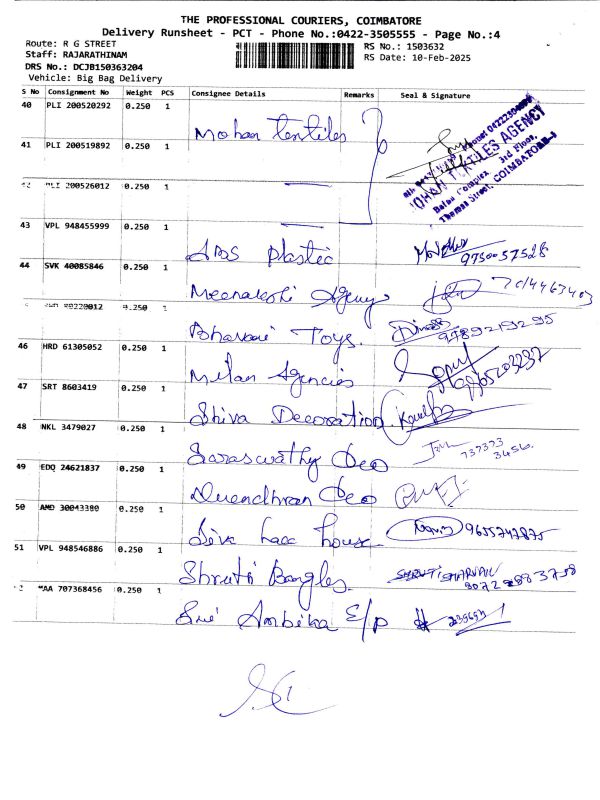 THE PROFESSIONAL COURIERS, COIMBATORE
Delivery Runsheet - PCT - Phone No.:0422-3505555 - Page No.:4
Route: R G STREET
RS No.: 1503632
Staff: RAJARATHINAM
RS Date: 10-Feb-2025
DRS No.: DCJB150363204
Vehicle: Big Bag Delivery
S No Consignment No Weight PCS Consignee Details Remarks Seal & Signature
40 PLI 200520292 0.250 1 Mohan Textiles
41 PLI 200519892 0.250 1
TILES AGENCY
Balaa Complex 3rd Floor,
Thomas Street, COIMBATORE-1
42 PLI 200526012 0.250 1
43 VPL 948455999 0.250 1
ABS Plastic 9750057528
44 SVK 40085846 0.250 1
Meenakshi Agency 7014463403
80220012 0.250 1
Bhavani Toys. 9489219295
46 HRD 61305052 0.250 1
Milan Agencies 9965203237
47 SRT 8603419 0.250 1
Shiva Decoration
48 NKL 3479027 0.250 1
Saraswathy Deo 737373
3456.
49 EDQ 24621837 0.250 1
Deo
50 AMD 30043380 0.250 1
Siva lace house
51 VPL 948546886 0.250 1
Shruti Bangles.
AA 707368456 0.250 1
Sri Ambika E/P